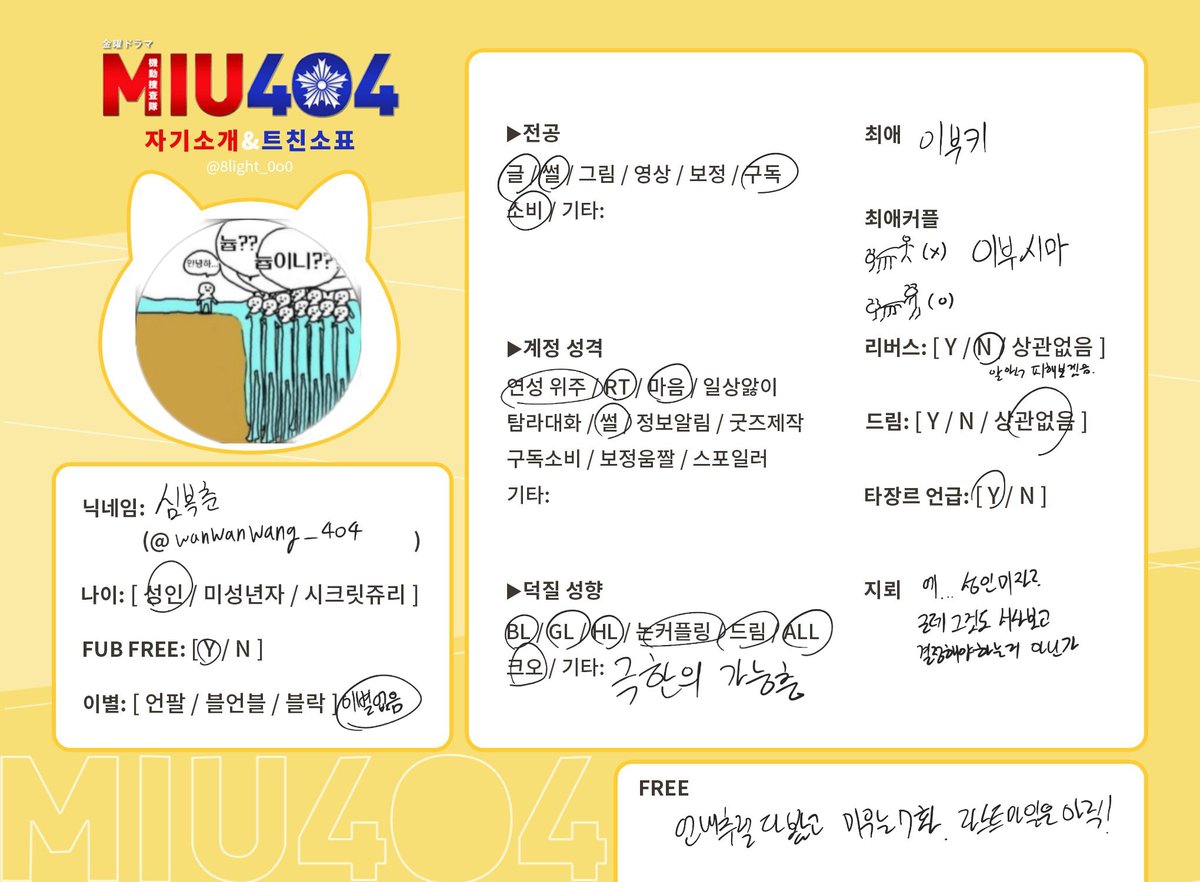 金曜ドラマ
MIU404
機動捜査隊
자기소개&트친소표
@8light_0o0
안녕하...
늅??
늅이니??
닉네임: 심복춘
(@wanwanwang_404)
나이: [ 성인 / 미성년자 / 시크릿쥬리 ]
FUB FREE: [ Y / N ]
이별: [ 언팔 / 블언블 / 블락 ] 이별없음
▶전공
글 / 썰 / 그림 / 영상 / 보정 / 구독
소비 / 기타:
▶계정 성격
연성 위주 / RT / 마음 / 일상앓이
탐라대화 / 썰 / 정보알림 / 굿즈제작
구독소비 / 보정움짤 / 스포일러
기타:
▶덕질 성향
BL / GL / HL / 논커플링 / 드림 / ALL
크오 / 기타: 극한의 가능충
최애 이부키
최애커플
(x) 이부시마
(o)
리버스: [ Y / N / 상관없음 ]
알아서 피해보겠음.
드림: [ Y / N / 상관없음 ]
타장르 언급: [ Y / N ]
지뢰 에... 성인미자?
근데 그것도 서사보고
결정해야하는거 아닌가
FREE
언내추럴 다봤고 미우는 7화. 라스트마일은 아직!
MIU404